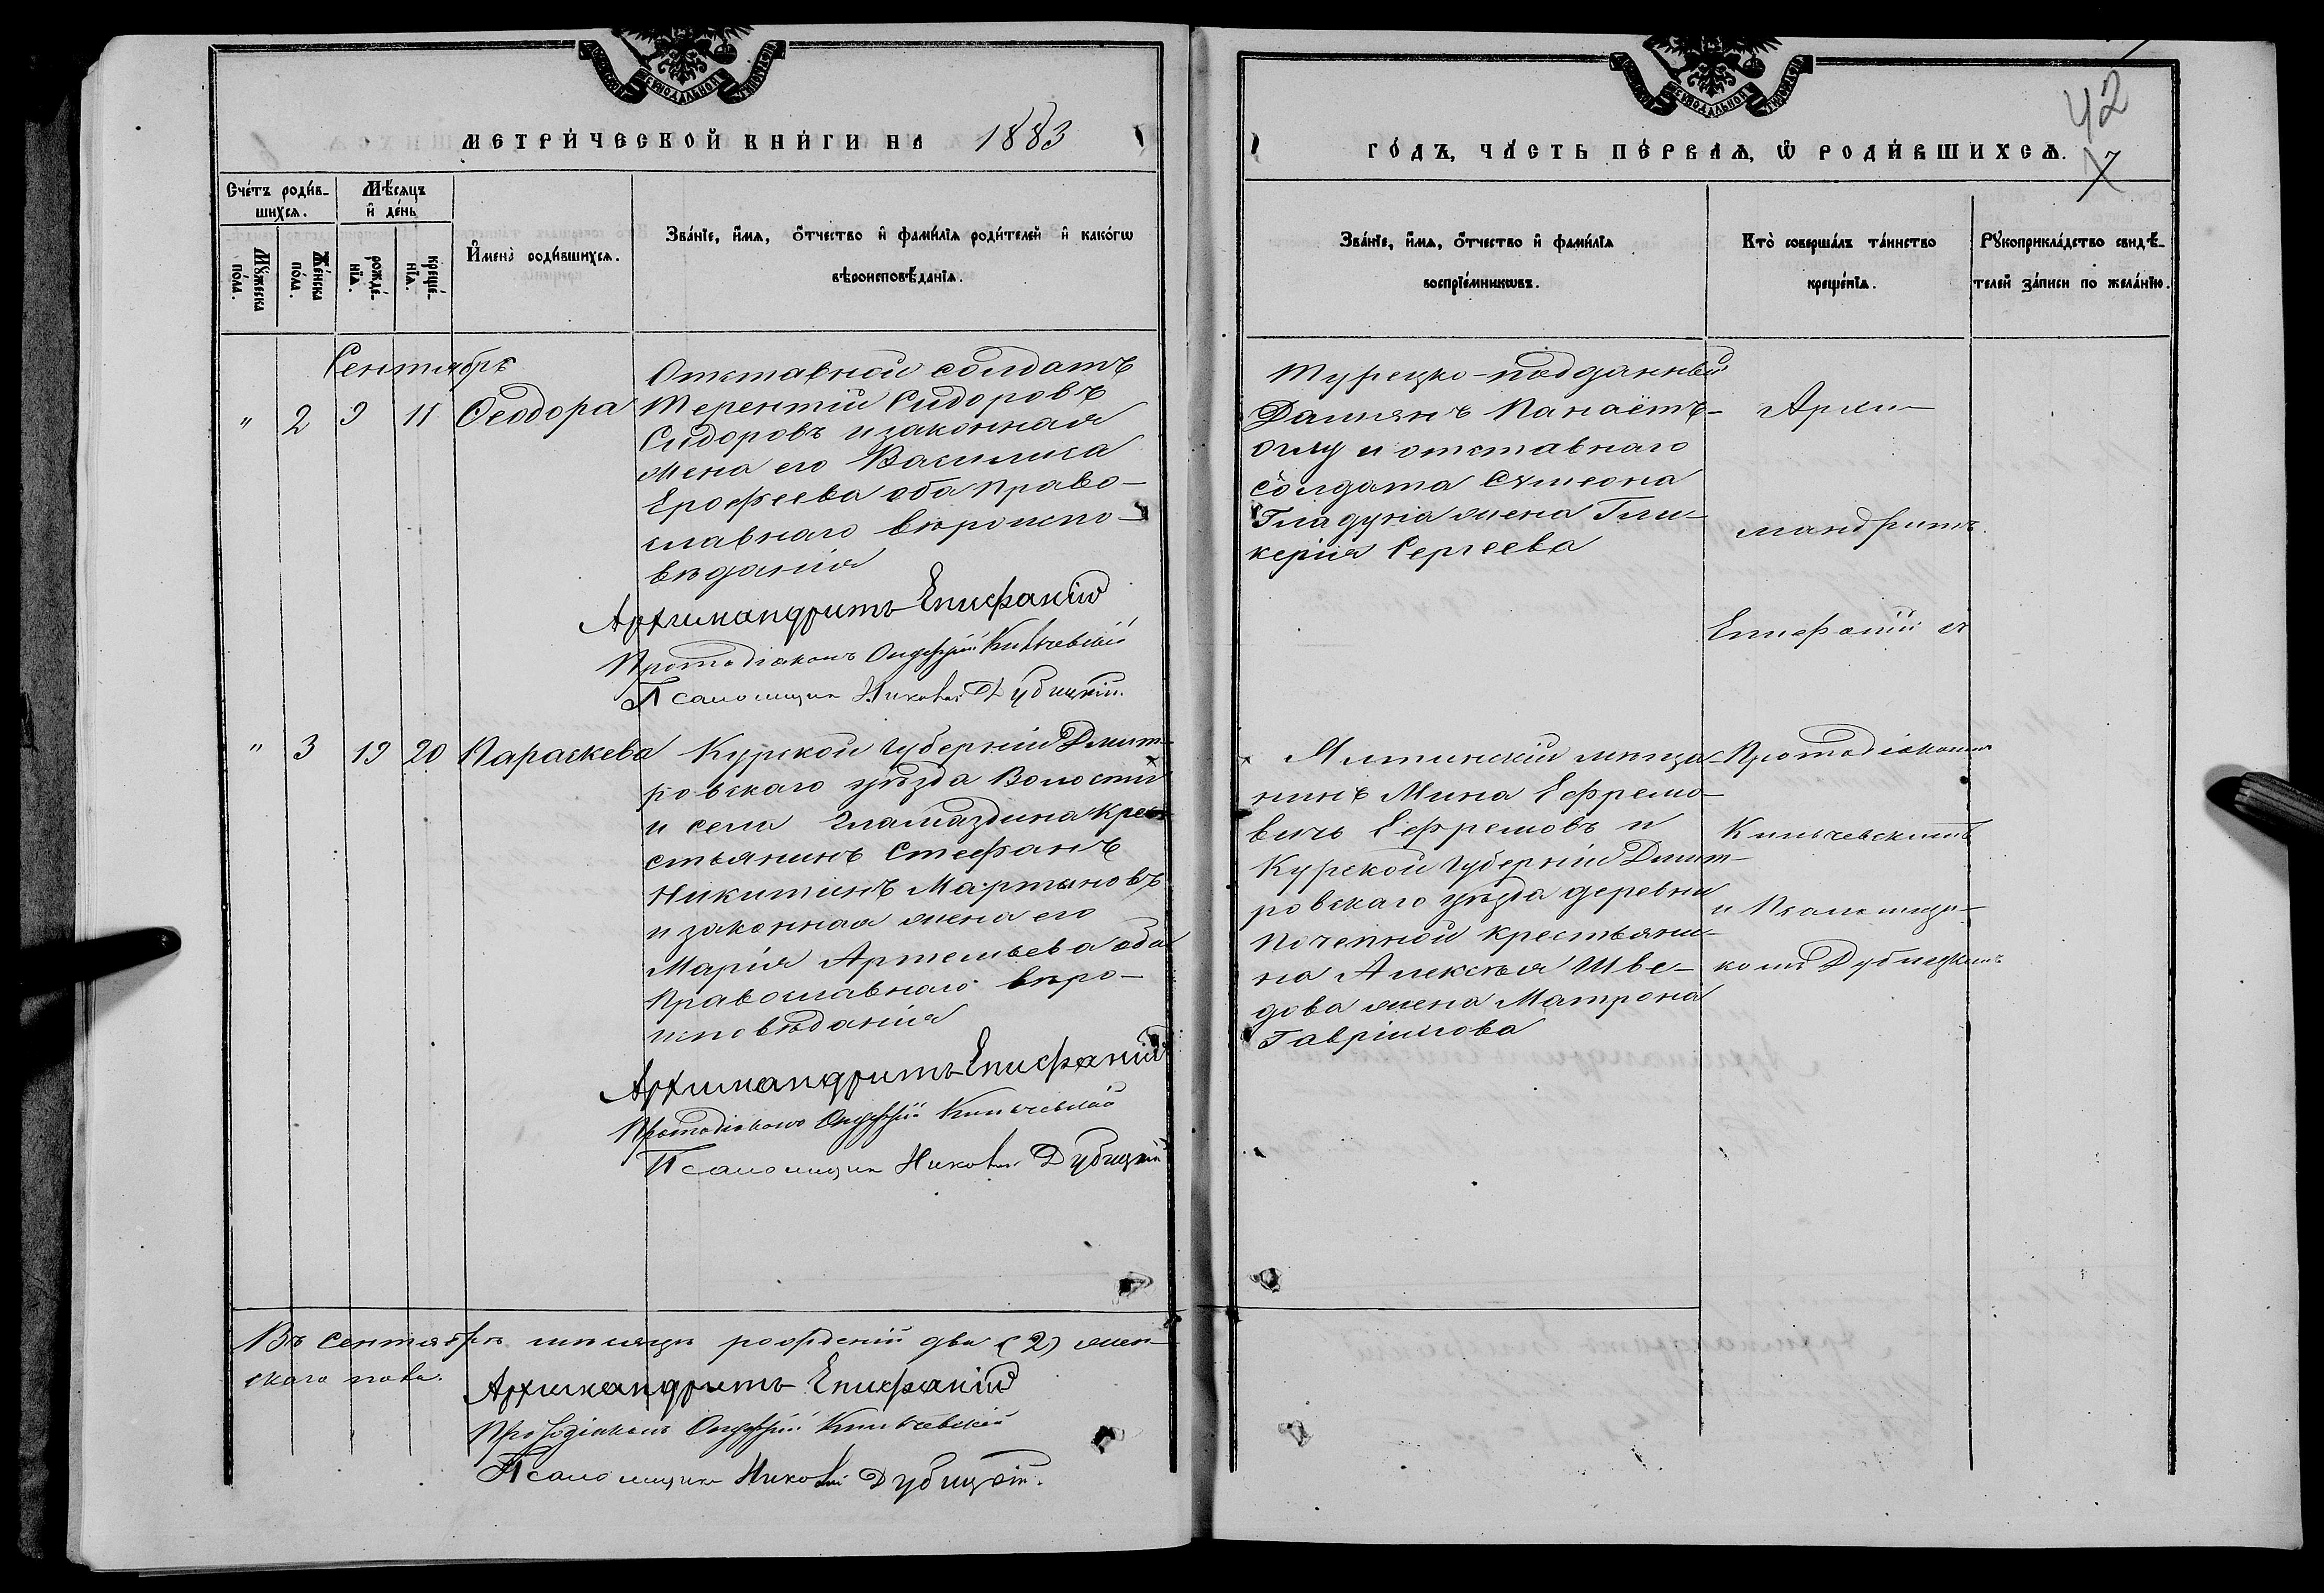 СѴНОДАЛЬНОЙ
СѴНОДАЛЬНОЙ
42
7
МЕТРИ́ЧЕСКОЙ КНИ́ГИ НА 1883
ГО́ДЪ, ЧА́СТЬ ПЕ́РВАѦ, Ѡ҆ РОДИ́ВШИХСѦ.
Сче́тъ роди́в-
шихсѧ.
Мѣ́сѧцъ
и҆ де́нь
Мꙋ́жеска
по́ла.
Же́нска
по́ла.
рожде́-
нїѧ.
креще́-
нїѧ.
И҆мена̀ роди́вшихсѧ.
Зва́нїе, и҆́мѧ, ѻ҆́тчество и҆ фами́лїѧ роди́телей и҆ како́гѡ
вѣроисповѣ́данїѧ.
Зва́нїе, и҆́мѧ, ѻ҆́тчество и҆ фами́лїѧ
воспрїе́мникѡвъ.
Кто̀ соверша́лъ та́инство
креще́нїѧ.
Рꙋкоприкла́дство свидѣ́-
телей за́писи по жела́нїю.
Сентябрь
" 2 9 11 Ѳеодора
Отставной солдатъ
Терентій Сидоровъ
Сидоровъ и законная
жена его Василиса
Ерофеева оба право-
славнаго вѣроиспо-
вѣданія
Архимандритъ Епифаній
Протодіаконъ Кильчевскій
Псаломщикъ Николай Дубицкій.
Турецко-подданный
Дамянъ Панаетъ-
оглу и отставнаго
солдата Сѵмеона
Гладуна жена Гли-
керія Сергеева
Архи-
мандритъ
Епифаній съ
" 3 19 20 Параскева
Курской губерніи Дмит-
ровскаго уѣзда Волости
и села Гламаздина кре-
стьянинъ Стефанъ
Никитинъ Мартыновъ
и законная жена его
Марія Артемьева оба
Православнаго вѣро-
исповѣданія
Архимандритъ Епифаній
Протодіаконъ Кильчевскій
Псаломщикъ Николай Дубицкій
Ялтинскій мѣща-
нинъ Мина Ефремо-
вичъ Ефремовъ и
Курской губерніи Дмит-
ровскаго уѣзда деревни
Почепной крестьяни-
на Алексѣя Шве-
дова жена Матрона
Гавріилова
Протодіакономъ
Кильчевскимъ
и Псаломщи-
комъ Дубицкимъ
Въ Сентябрѣ мѣсяцѣ рожденій два (2) жен-
скаго пола.
Архимандритъ Епифаній
Протодіаконъ Кильчевскій
Псаломщикъ Николай Дубицкій.